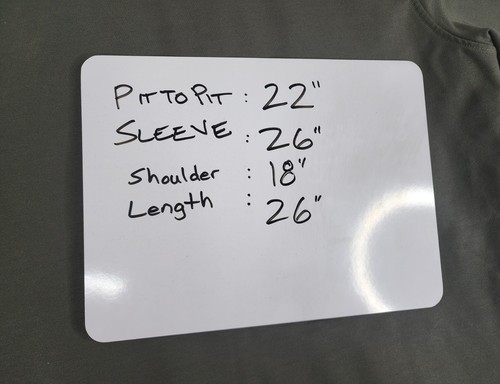 PIT TO PIT : 22"
SLEEVE : 26"
Shoulder : 18"
Length : 26"